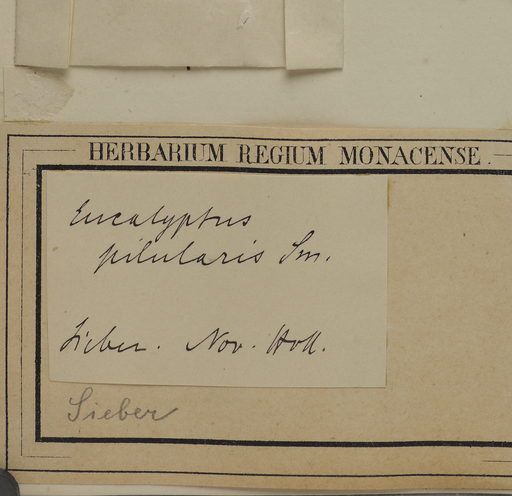 HERBARIUM REGIUM MONACENSE.
Eucalyptus
pilularis Sm.
Sieber. Nov. Holl.
Sieber